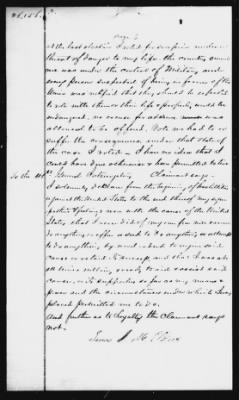 page 5
At the last election I voted for secession under a
threat of danger to my life the country around
me was under the control of Military and
any person suspected of being in favor of the
Union was notified that they should be expected
to vote with them or their life & property would be
endangered, no excuse for absence was
allowed to be offered. Vote we had to or
suffer the consequences under that state of
the case I voted & I have no idea that I
could have done otherwise & been permitted to live
To the 40th General Interrogatory Claimant says
I solemnly declare from the beginning of hostilities
against the United States to the end thereof my sym-
pathies & feelings were with the cause of the United
States, that I never did of my own free accord
do anything or offer or seek to do anything or attempt
to do anything, by word or deed to injure said
cause or retard its success, and that I was at
all times willing, ready to aid & assist said
cause, or its supporters so far as my means &
power and the circumstances under which I was
placed permitted me to do.
And further as to loyalty the Claimant says
not.